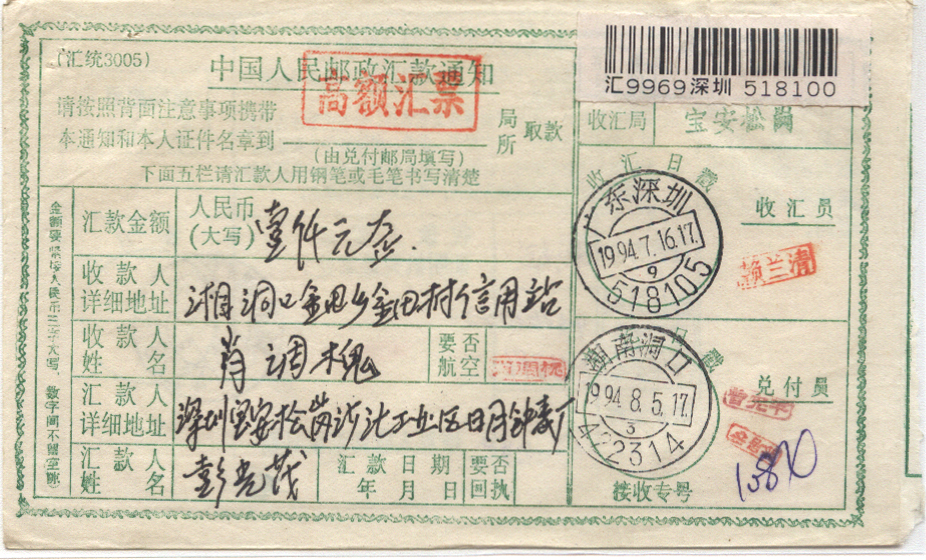 (汇统3005)
中国人民邮政汇款通知
高额汇票
汇9969深圳 518100
请按照背面注意事项携带
本通知和本人证件名章到
局
所
取款
(由兑付邮局填写)
下面五栏请汇款人用钢笔或毛笔书写清楚
收汇局
宝安松岗
收汇日戳
广东深圳
1994.7.16.17.
9
518105
收汇员
赖兰清
汇款金额
人民币
(大写)
壹仟元整.
收款人
详细地址
湖洞口金田乡金田村信用站
收款人
姓名
肖调槐
要否
航空
汇款人
详细地址
深圳宝安松岗沙江工业区日月钟表厂
汇款人
姓名
彭光茂
汇款日期
年月日
要否
回执
日戳
湖南洞口
1994.8.5.17.
3
422314
兑付员
接收专号